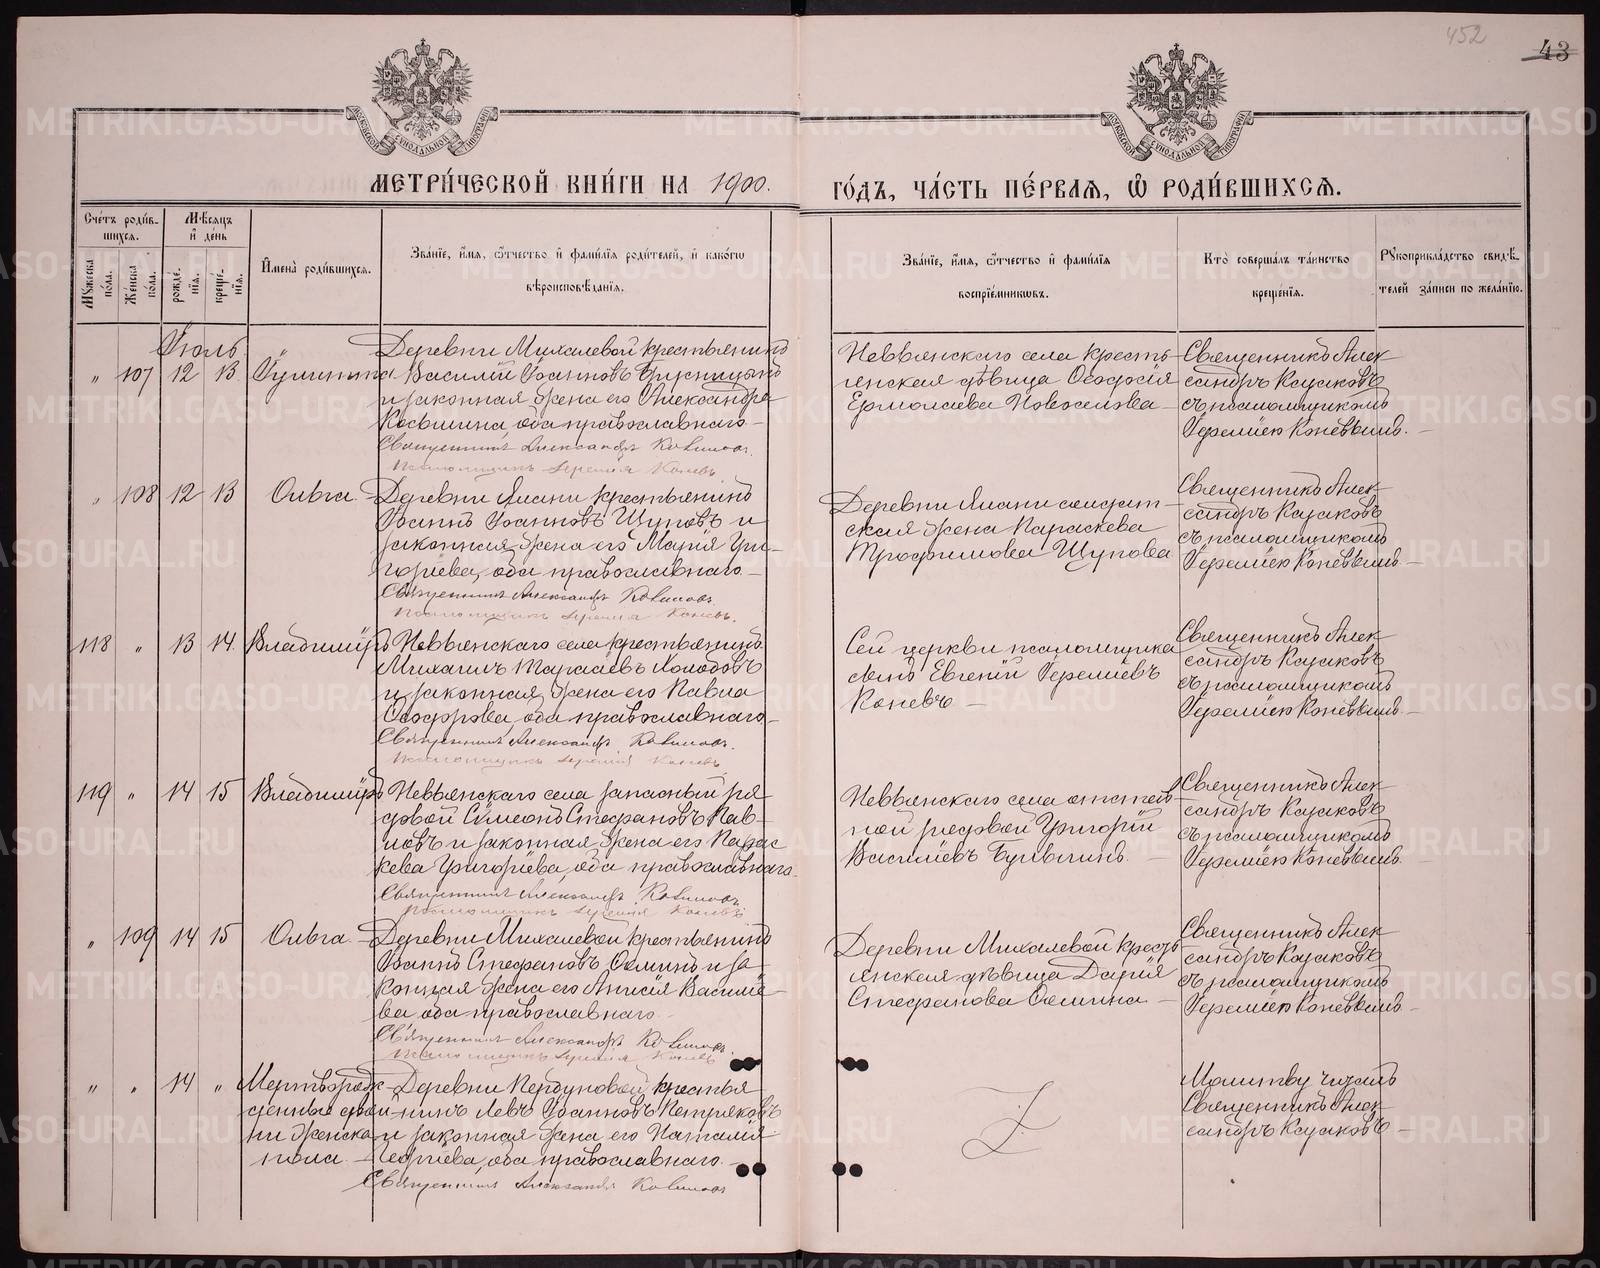 452
43
МОСКОВСКОЙ СѴНОДАЛЬНОЙ ТИПОГРАФІИ
МОСКОВСКОЙ СѴНОДАЛЬНОЙ ТИПОГРАФІИ
МЕТРИ́ЧЕСКОЙ КНИ́ГИ НА 1900.
ГО́ДЪ, ЧА́СТЬ ПЕ́РВАѦ, Ѡ҆ РОДИ́ВШИХСѦ.
Сче́тъ роди́в-
шихсѧ.
Мꙋ́жеска по́ла.
Же́нска по́ла.
Мѣ́сѧцъ
и҆ де́нь
рожде́нїѧ.
креще́нїѧ.
И҆мена̀ роди́вшихсѧ.
Зва́нїе, и҆́мѧ, ѻ҆́тчество и҆ фами́лїѧ роди́телей, и҆ како́гѡ
вѣроисповѣ́данїѧ.
Зва́нїе, и҆́мѧ, ѻ҆́тчество и҆ фами́лїѧ
воспрїе́мникѡвъ.
Кто̀ соверша́лъ та́инство
креще́нїѧ.
Рꙋкоприкла́дство свидѣ́-
телей за́писи по жела́нїю.
Іюль
„ 107 12 13 Іулитта
Деревни Михалевой крестьянинъ
Василій Іоанновъ Брусницынъ
и законная жена его Александра
Косьмина, оба православнаго
Священникъ Александръ
Псаломщикъ Іеремія Коневъ
Невьянскаго села кресть-
янская дѣвица Ѳеодосія
Ермолаева Новоселова
Священникъ Алек-
сандръ
съ псаломщикомъ
Іереміею Коневымъ.
„ 108 12 13 Ольга
Деревни Ялани крестьянинъ
Іоаннъ Іоанновъ Щуповъ и
законная жена его Марія Гри-
горіева, оба православнаго
Священникъ Александръ
Псаломщикъ Іеремія Коневъ.
Деревни Ялани солдат-
ская жена Параскева
Трофимова Щупова
Священникъ Алек-
сандръ
съ псаломщикомъ
Іереміею Коневымъ.
118 „ 13 14 Владиміръ
Невьянскаго села крестьянинъ
Михаилъ Тарасіевъ Холодовъ
и законная жена его Павла
Ѳеодорова, оба православнаго
Священникъ Александръ
Псаломщикъ Іеремія Коневъ
Сей церкви псаломщика
сынъ Евгеній Іереміевъ
Коневъ
Священникъ Алек-
сандръ
съ псаломщикомъ
Іереміею Коневымъ.
119 „ 14 15 Владиміръ
Невьянскаго села запасный ря-
довой Сімеонъ Стефановъ Пав-
ловъ и законная жена его Парас-
кева Григоріева, оба православнаго
Священникъ Александръ
Псаломщикъ Іеремія Коневъ
Невьянскаго села отстав-
ной рядовой Григорій
Василіевъ
Священникъ Алек-
сандръ
съ псаломщикомъ
Іереміею Коневымъ.
„ 109 14 15 Ольга
Деревни Михалевой крестьянинъ
Іоаннъ Стефановъ и за-
конная жена его Анисія Василіе-
ва, оба православнаго
Священникъ Александръ
Псаломщикъ Іеремія Коневъ
Деревни Михалевой кресть-
янская дѣвица Дарія
Стефанова
Священникъ Алек-
сандръ
съ псаломщикомъ
Іереміею Коневымъ.
„ „ 14 „
Мертворож-
женска
пола
Деревни крестья-
нинъ Левъ Іоанновъ Петряковъ
и законная жена его Наталія
Георгіева, оба православнаго
Священникъ Александръ
Молитву читалъ
Священникъ Алек-
сандръ
METRIKI.GASO-URAL.RU